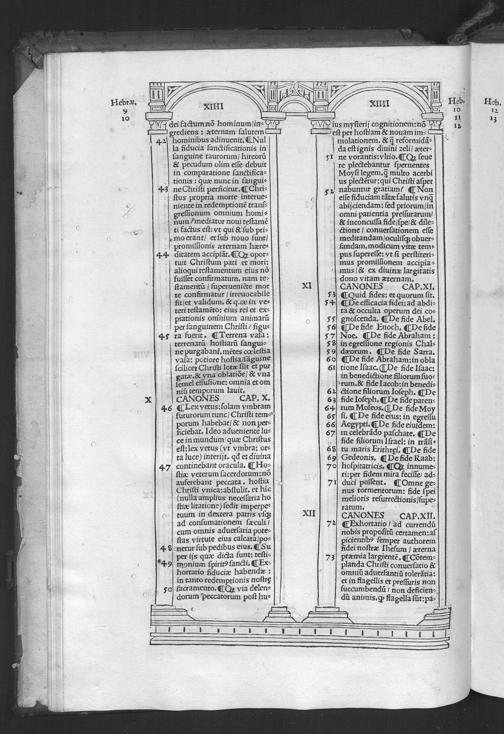 Hebræ.
9
10
XIIII
dei factum nõ hominum/in-
grediens: æternam salutem
42 hominibus adinuenit. ¶ Nul
la fiducia sanctificationis in
sanguine taurorum/ hircorũ
& pecudum olim esse debuit
in comparatione sanctifica-
tionis: quæ nunc in sangui-
43 ne Christi perficitur. ¶ Chri-
stus propria morte interue-
niente in redemptionẽ trans-
gressionum omnium homi-
num/ mediator noui testamẽ
ti factus est: vt qui & sub pri-
mo erant/ et sub nouo sunt/
promissionis æternam hære-
44 ditatem accipiãt. ¶ Qꝫ opor-
tuit Christum pati et mori:
alioqui testamentum eius nõ
fuisset confirmatum. nam te-
stamentũ/ superueniẽte mor
te confirmatur/ irreuocibile
fit/ et validum
teri testamẽto: eius rei et ex-
piationis omnium animarũ
per sanguinem Christi/ figu-
45 ra fuerit. ¶ Terrena vasa:
terrenarũ hostiarũ sangui-
ne purgabant. mẽtes cœlestia
vasa: potiore hostia/ sãguine
scilicet Christi
gatæ. & vna oblatiõe/ & vna
semel effusione: omnia et om
niũ temporum lauit.
X CANONES CAP. X.
46 ¶ Lex vetus: solam vmbram
futurorum tunc/ Christi tem-
porum habebat/ & non per-
ficiebat. Ideo adueniente lu-
ce in mundum/ quæ Christus
est: lex vetus (vt vmbra: or-
ta luce) interijt. qđ et diuina
47 continebant oracula. ¶ Ho-
stiæ veterum sacerdotum: nõ
auferebant peccata. hostia
Christi vnica: abstulit. et hic
(nulla amplius necessaria ho
stiæ litatione) sedit imperpe-
tuum in dextera patris vsqꝫ
ad consumationem sæculi/
cum omnis aduersaria pote-
stas virtute eius calcata/ po-
48 netur sub pedibus eius. ¶ Su
per ijs quæ dicta sunt: testi-
*49 monium spiritꝰ sancti. ¶ Ex-
hortatio fiduciæ habendæ:
in tanto redemptionis nostrę
50 sacramento. ¶ Qꝫ via delen-
dorum peccatorum post hu-
Heb.
10
11
12
XIIII
ius mysterij cognitionem: nõ
est per hostiam & nouam im-
molationem. & ꝙ̃ reformidã-
da est ignis diuini zeli/ æter-
51 ne vorantis: vltio. ¶ Qꝫ seue
re plectebantur spernentes
Moysi legem. ꝙ̃ multo acerbi
us plectẽtur: qui Christi asper
52 nabuntur gratiam? ¶ Non
esse fiduciam tãtæ salutis vnꝙ̃
abijciendam: sed priorum/ in
omni patientia pressurarum/
& inconcussa fide/ spe/ & dile-
ctione/ conuersationem esse
meditandam/ oculisqꝫ obuer-
sandam. modicum vitæ tem-
pus superesse: vt si perstiteri-
mus promissionem accipia-
mus/ & ex diuinæ largitatis
dono vitam æternam.
XI CANONES CAP. XI.
53 ¶ Quid fides: et quorum sit.
54 ¶ De efficacia fidei: ad abdi-
ta & occulta operum dei co-
55 gnoscenda. ¶ De fide Abel.
56 ¶ De fide Enoch. ¶ De fide
57 Noe. ¶ De fide Abraham:
58 in egressione regionis Chal-
59 dæorum. ¶ De fide Sara.
60 ¶ De fide Abraham: in obla
61 tione Isaac. ¶ De fide Isaac:
in benedictione filiorum suo-
rum. & fide Iacob: in benedi-
62 ctione filiorum Ioseph. ¶ De
63 fide Ioseph. ¶ De fide paren-
64 tum Moseos. ¶ De fide Moy
65 si. ¶ De fide eius: in egressu
66 Aegypti. ¶ De fide eiusdem:
67 in celebrãdo paschate. ¶ De
fide filiorum Israel: in trãsi-
68 tu maris Erithręi. ¶ De fide
69 Gedeonis. ¶ De fide Raab:
70 hospitatricis. ¶ Qꝫ innume-
ri: per fidem mira fecisse: ad-
71 duci possent. ¶ Omne ge-
nus tormentorum: fide spei
melioris resurrectionis/ supe-
ratum.
XII CANONES CAP. XII.
72 ¶ Exhortatio/ ad currendũ
nobis propositũ certamen: as
picientibꝰ semper authorem
fidei nostræ Ihesum/ æterna
73 præmia largientẽ. ¶ Cõtem-
planda Christi conuersatio &
omniũ aduersantiũ tolerãtia:
et in flagellis et pressuris non
succumbendũ/ non deficien-
dũ animis. ꝙ flagella sũt: pa-
Heb.
12
13